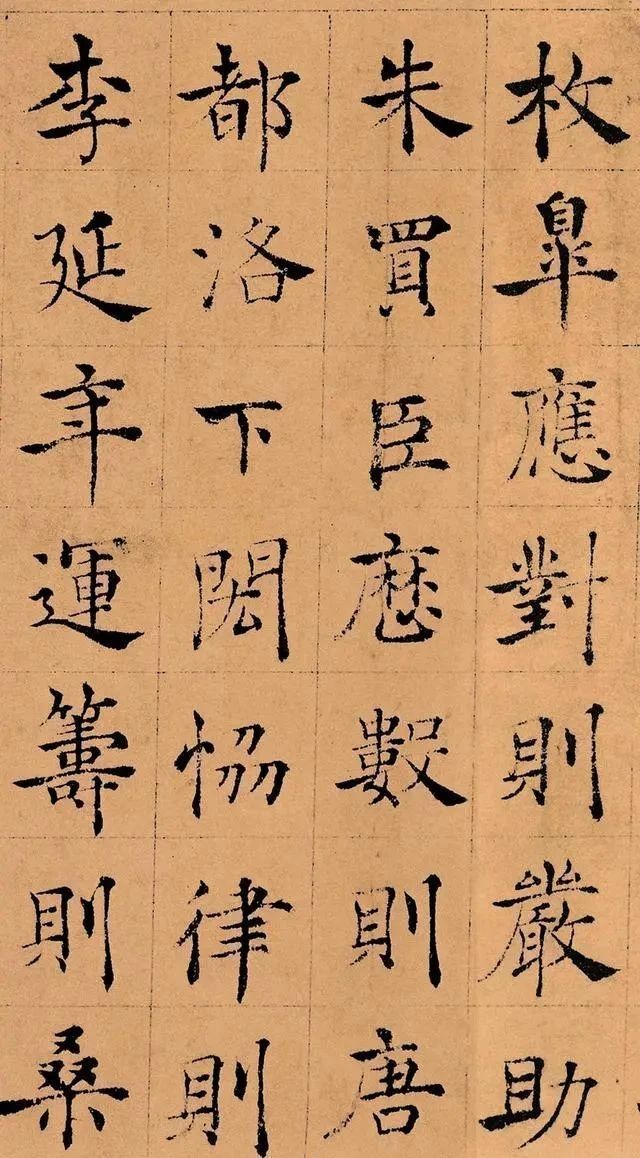 枚皐應對則嚴助
朱買臣厯數則唐
都洛下閎恊律則
李延年運籌則桑